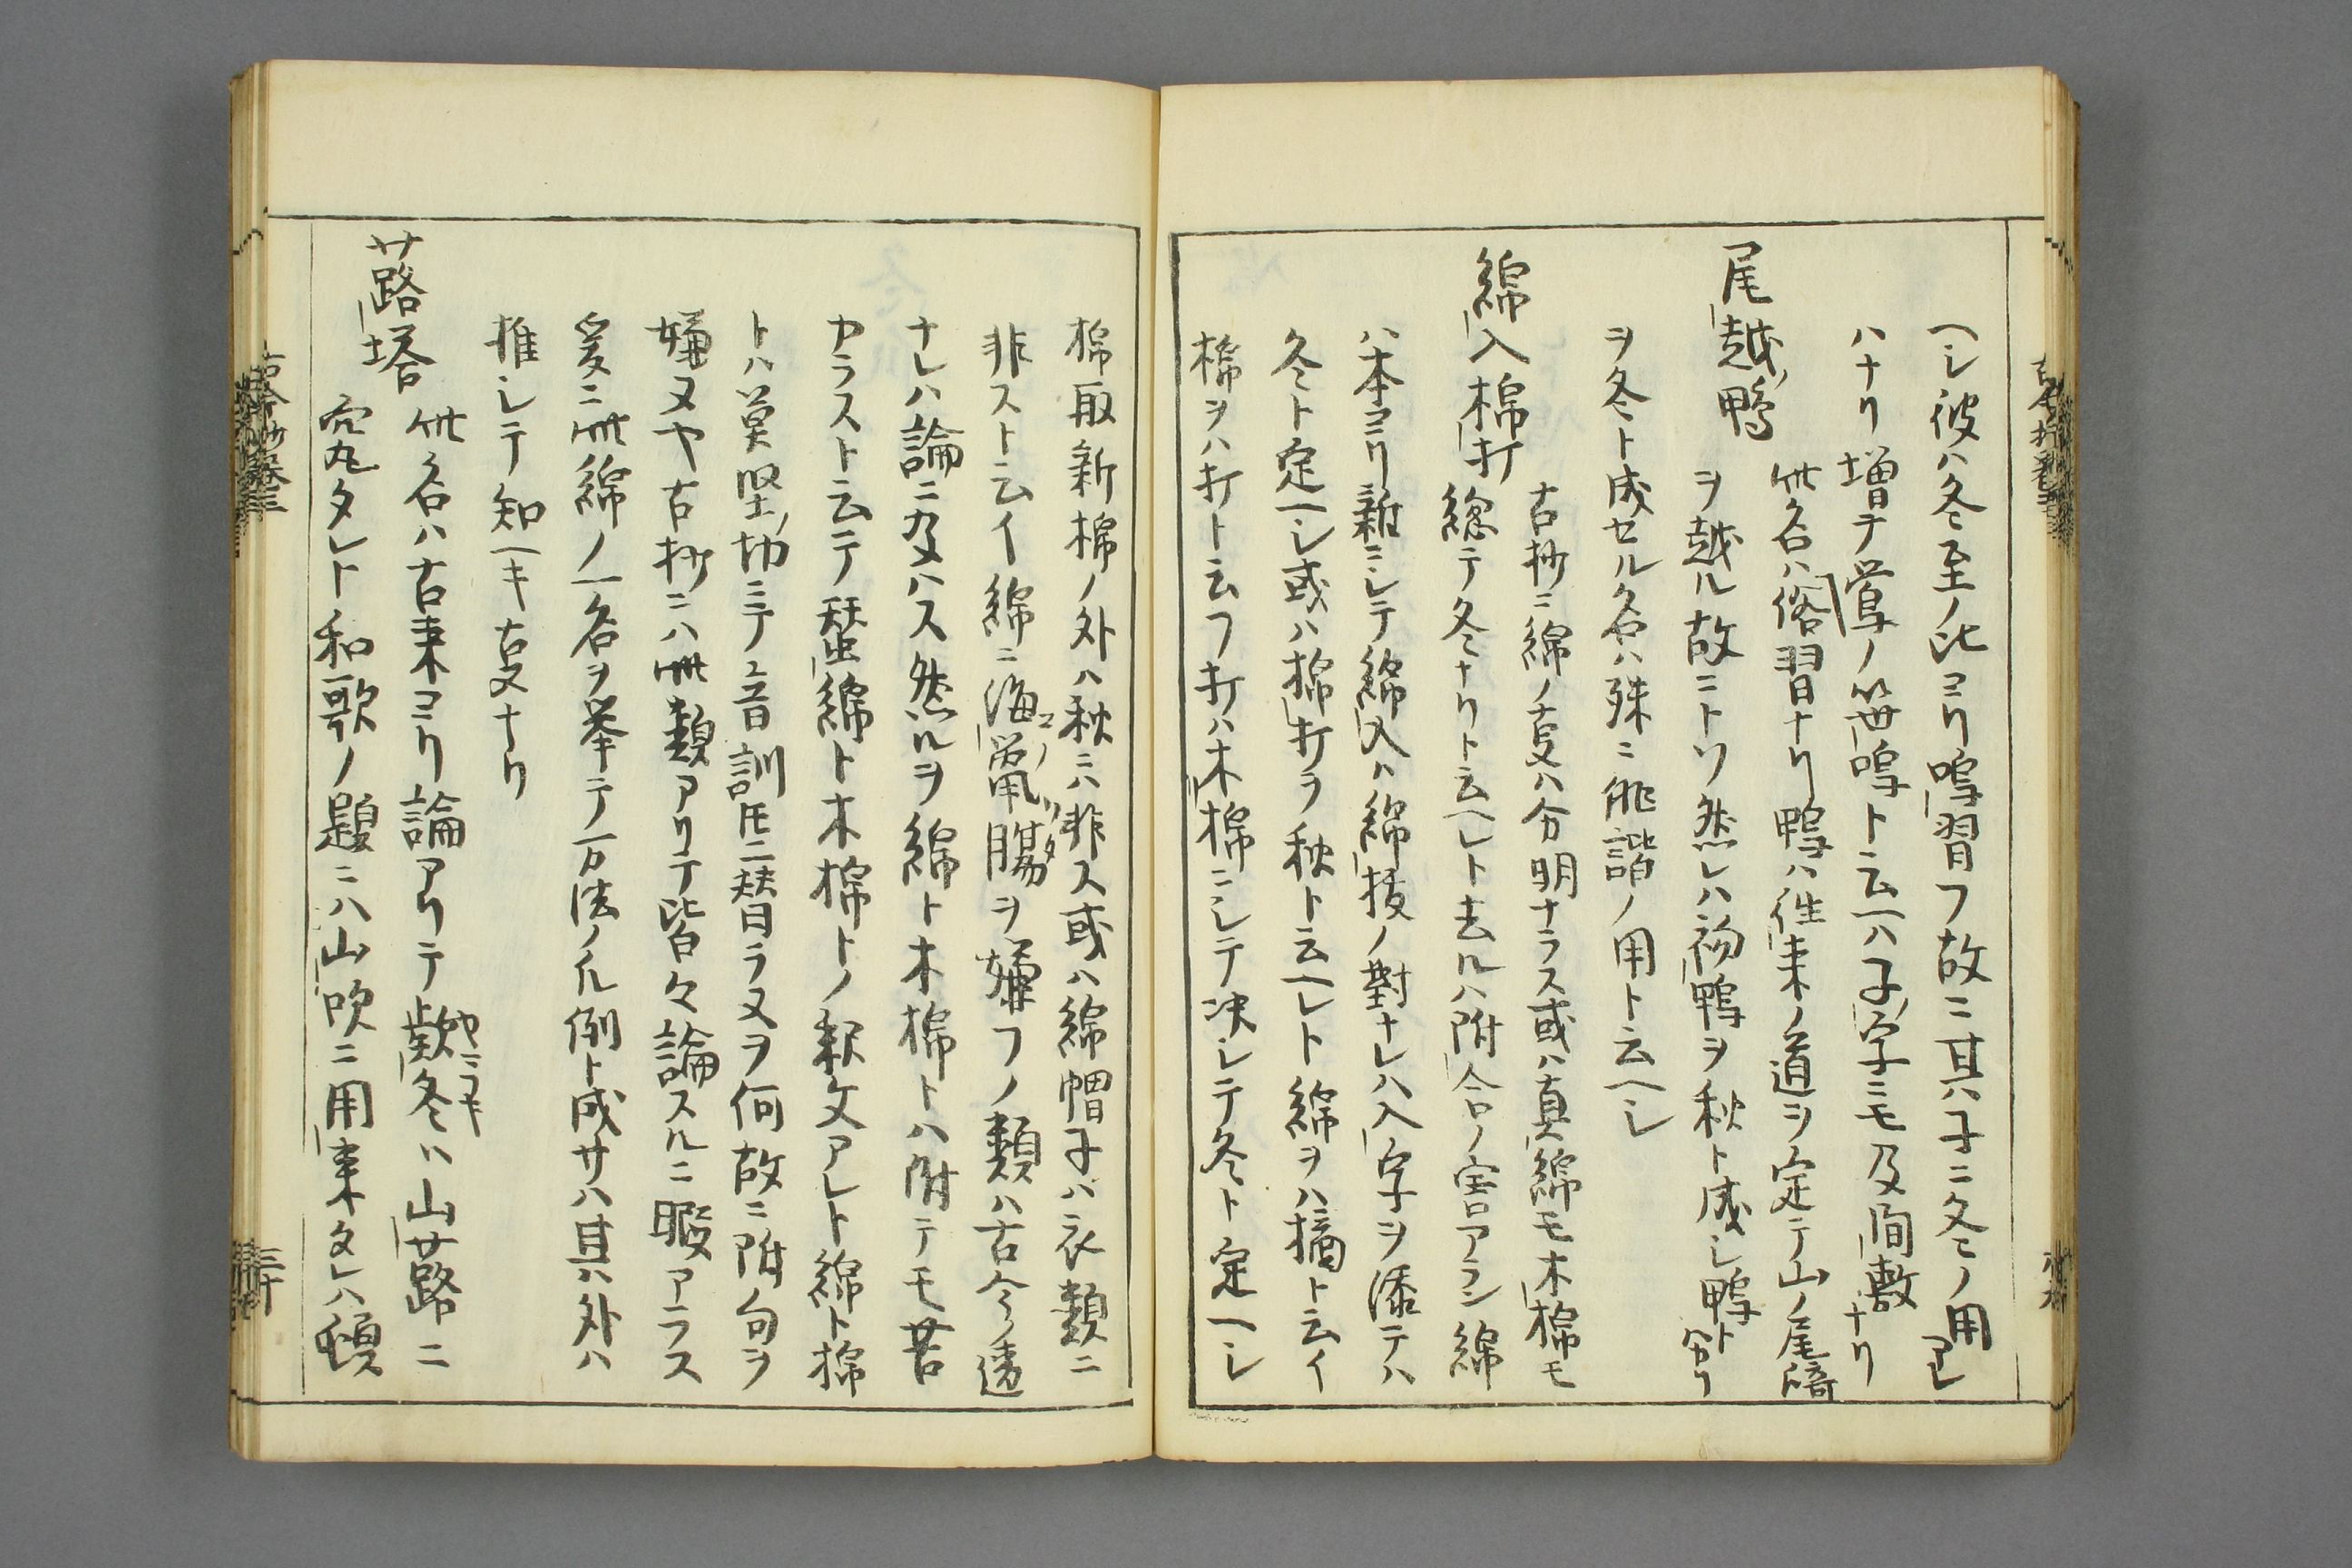 ヘシ彼ハ冬至ノ比ヨリ鳴習フ故ニ其ハ子ニ冬ノ用アレ
ハナリ増テ鶯ノ笹鳴ト云ヘハ子ノ字ニモ及間敷ナリ
尾越ノ鴨
此名ハ俗習ナリ鴨ハ往来ノ道ヲ定テ山ノ尾﨑
ヲ越ル故ニトソ然レハ初鴨ヲ秋ト成シ鴨ト
ヲ冬ト成セル名ハ殊ニ俳諧ノ用ト云ヘシ
綿入 棉打
古抄ニ綿ノ叓ハ分明ナラス或ハ真綿モ木棉モ
総テ冬ナリト云ヘレト去ルハ附合ノ害アラン綿
ハ本ヨリ雑ニシテ綿入ハ綿抜ノ對ナレハ入ノ字ヲ添テハ
冬ト定ヘシ或ハ棉打ヲ秋ト云ヘレト綿ヲハ摘ト云イ
棉ヲハ打ト云フ打ハ木棉ニシテ决シテ冬ト定ヘシ
棉取新棉ノ外ハ秋ニハ非ス或ハ綿帽子ハ衣類ニ
非スト云イ綿ニ海鼠腸ヲ嫌フノ類ハ古今ノ違
ナレハ論ニ及ハス然ルヲ綿ト木棉トハ附テモ苦
カラスト云テ蚕綿ト木棉トノ釈文アレト綿ト棉
トハ莫堅ノ切ニテ音訓圧ニ替ラヌヲ何故ニ附句ヲ
嫌ヌヤ古抄ニハ此類アリテ皆々論スルニ暇アラス
爰ニ此綿ノ一名ヲ挙テ万法ノ凡例ト成サハ其ハ外ハ
推シテ知ヘキ叓ナリ
蕗塔
此名ハ古来ヨリ論アリテ欵冬ハ山蕗ニ
究タレト和歌ノ題ニハ山吹ニ用来タレハ頓
古今抄巻三
三十